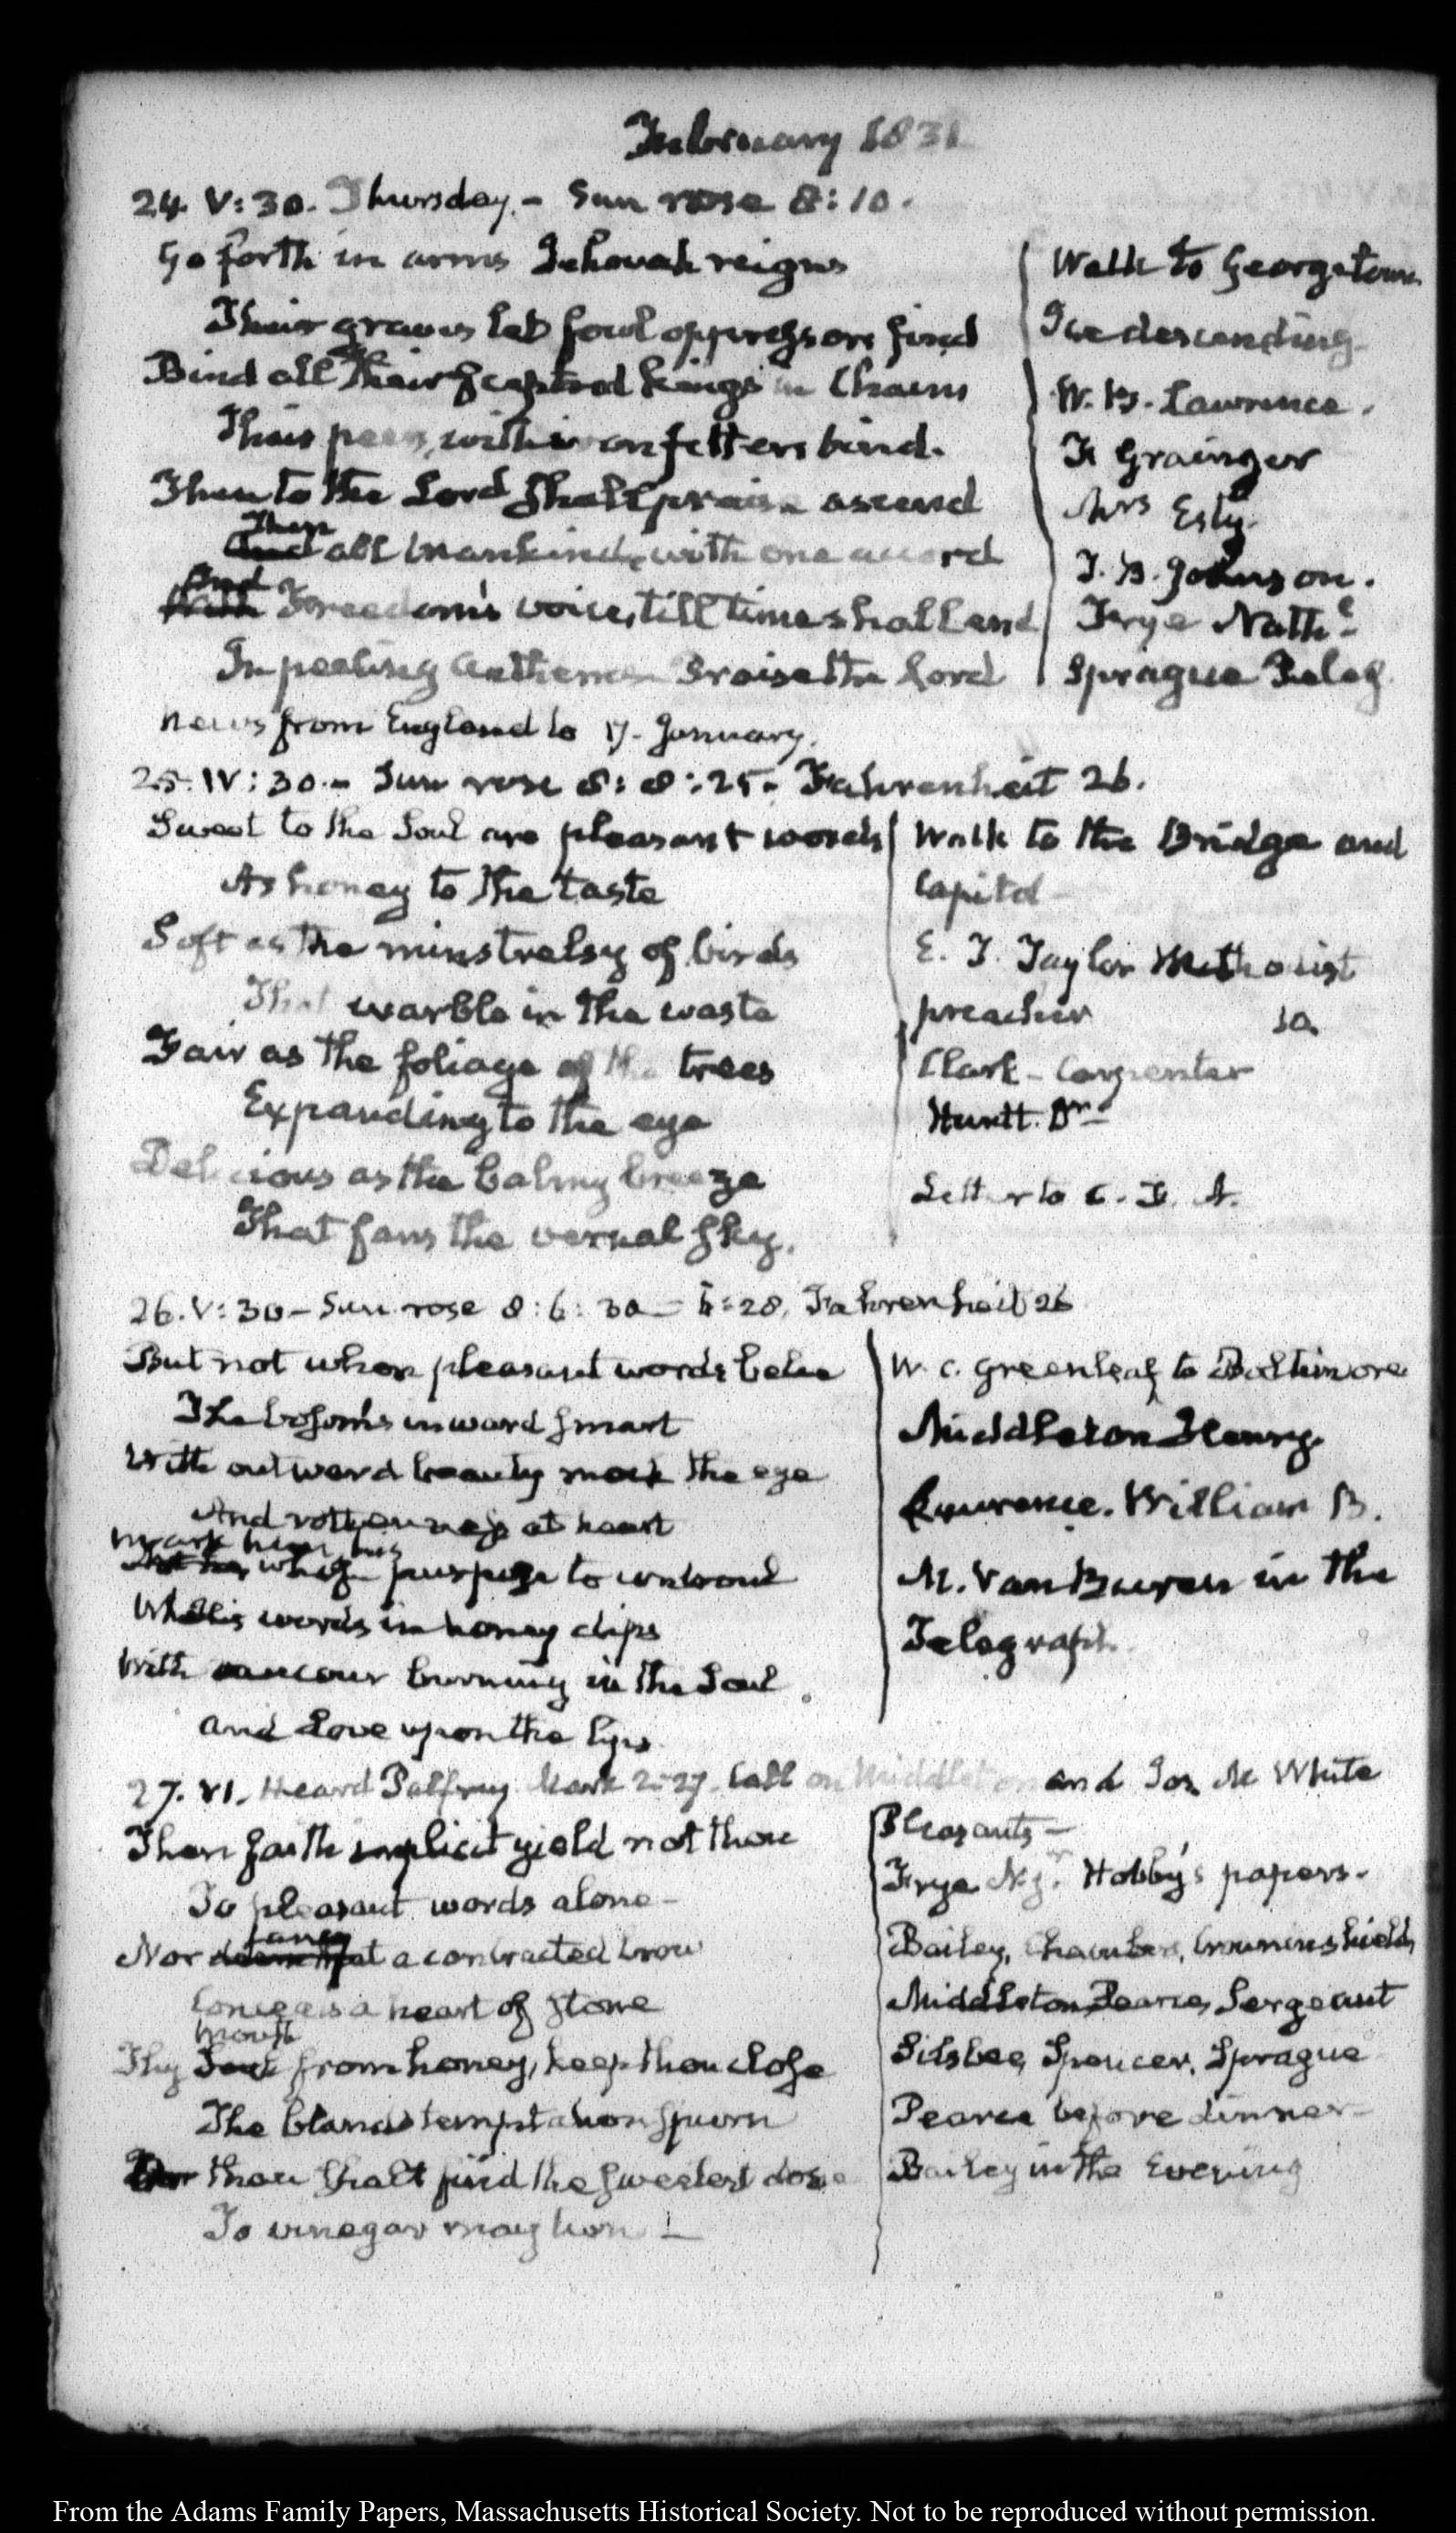 February 1831
24. V:30. Thursday.- Sun rose 8:10.
Go forth in arms Jehovah reigns
Their graves let foul oppressors find
Bind all their sceptred kings in Chains
Their peers with iron fetters bind.
Then to the Lord shall praise ascend
Then
And all mankind, with one accord
And
With Freedom's voice, till time shall end
In pealing anthems Praise the Lord
Walk to Georgetown
Ice descending-
W. B. Lawrence.
F Grainger
Mrs Esty.
J. B. Johnson.
Frye Nathl
Sprague Peleg
News from England to 17. January.
25. IV:30.- Sun rose 8:8:25. Fahrenheit 26.
Sweet to the Soul are pleasant words
As honey to the taste
Soft as the minstrelsy of birds
That warble in the waste
Fair as the foliage of the trees
Expanding to the eye
Delicious as the balmy breeze
That fans the vernal sky.
Walk to the Bridge and
Capitol
E. T. Taylor Methodist
preacher 10
Clark - Carpenter
Huntt. Dr
Letter to C. F. A.
26. V:30 - Sun rose 8:6:30 - 5:28. Fahrenheit 26
But not when pleasant words belie
The bosom's inward smart
With outward beauty mock the eye
And rottenness at heart
mark him,
whose purpose to
his words in honey dips
With rancour burning in the Soul
and Love upon the lips
W. C. Greenleaf to Baltimore
Middleton Henry
Lawrence. William B.
M. Van Buren in the
Telegraph.
27. VI. Heard Palfrey Mark 2-27. Call on Middleton and Jos. M White
Then faith implicit yield not thou
To pleasant words alone-
fancy
Nor deem that a contracted brow
Conceals a heart of stone
mouth
Thy from honey, keep thou close
The bland temptation spurn
thou shalt find the sweetest dose
To vinegar may turn -
Pleasants -
Frye Hobby's papers.
Bailey, Chambers, Crowninshield,
Middleton Pearce, Sergeant
Silsbee, Spencer, Sprague
Pearce before dinner-
Bailey in the Evening
From the Adams Family Papers, Massachusetts Historical Society. Not to be reproduced without permission.